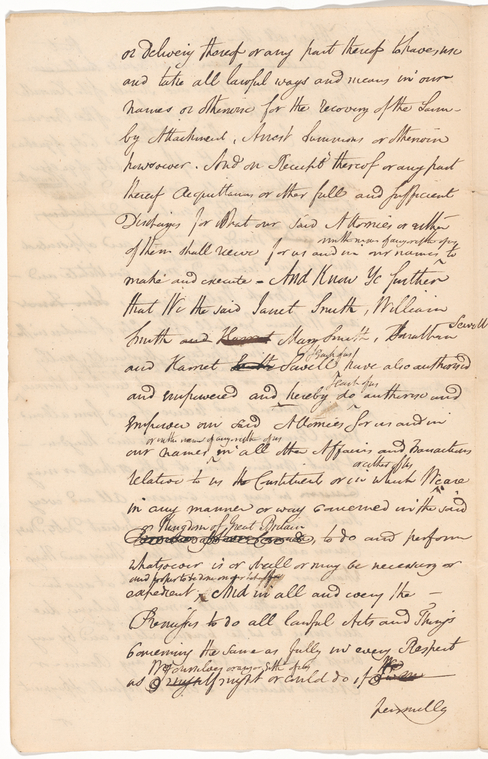 or Delivery thereof or any part thereof to have use
and take all lawful ways and means in our
names or otherwise for the recovery of the Same
by Attachment, Arrest Summons or otherwise
howsoever. And on Receipt thereof or any part
thereof Acquittances or other full and sufficient
Discharges for what our said Attornies or either
or in the name of any either of us
of them shall receive for us and in our names to
make and execute - And Know Ye further
that We the said Janet Smith, William
Smith and Harriet Mary Smith, Jonathan Sewell
and Harriet Smith Sewell have also authorised
each of us
and empowered and hereby do authorise and
empower our said Attornies for us and in
or in the name of any either of us
our names in all the Affairs and Transactions
or either of us
relative to us the Constituent or in which We are
in any manner or way concerned in the said
or Kingdom of Great Britain
to do and perform
whatsoever is or shall or may be necessary or
and proper to be done
expedient, And in all and every the
Premises to do all lawful Acts and Things
concerning the same as fully in every Respect
We ourselves or any or either of us We
as might or could do if
personally